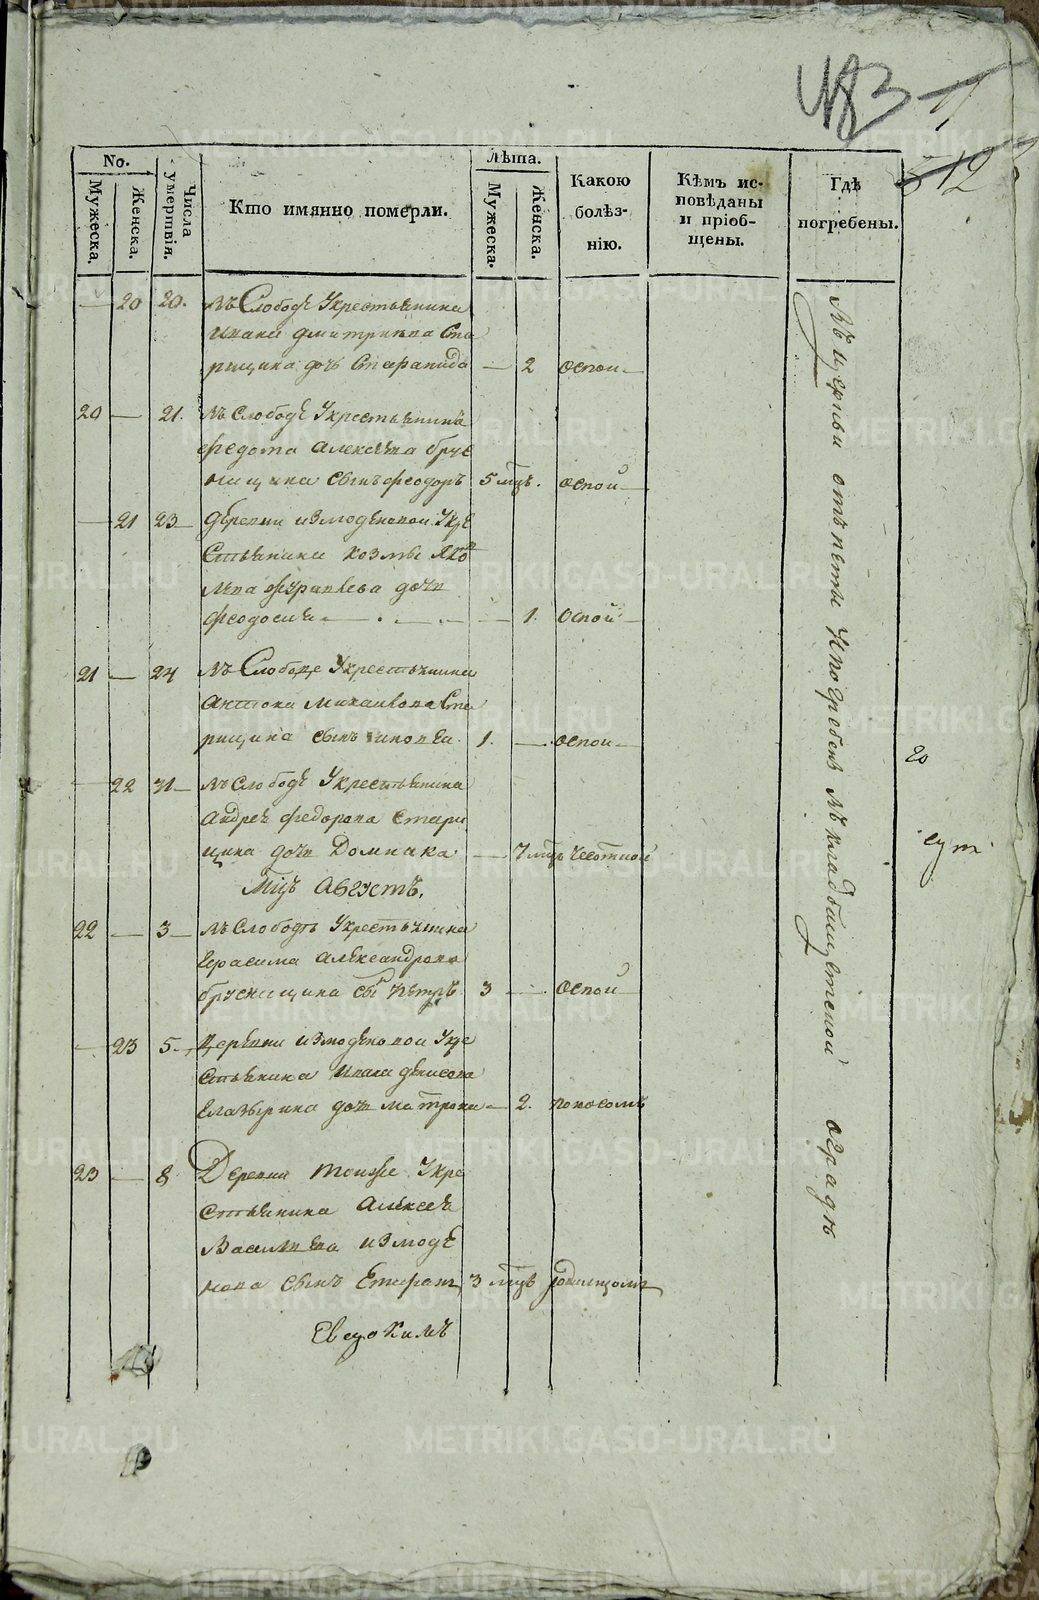 483
812
No.
Мужеска.
Женска.
Числа умертвія.
Кто имянно померли.
Лѣта.
Мужеска.
Женска.
Какою
болѣз-
нію.
Кѣмъ ис-
повѣданы
и пріоб-
щены.
Гдѣ
погребены.
— 20 20. въ Слободѣ Укрестьянина
Ивана Дмитриева Ста
рицина дочь Старанида — 2 оспои
20 — 21. въ слободѣ Укрестьянина
Федота Алексѣева брус
ницина сынъ феодоръ 5 мцъ. оспой
— 21 23 деревни измоденовои Укре
стьянина козмы Яков
лева Журавлева дочь
феодосия — 1. оспой
21 — 24 въ Слободе Укрестьянина
Антона михаилова Ста
рицина сынъ иаковъ 1. — оспои
— 22 31 въ слободѣ Укрестьянина
Андрея федорова стари
цина дочь Домника — 7 мцъ чесоткой
Мцъ Августъ.
22 — 3 въ слободѣ Укрестьянина
герасима александрова
брусницина сынъ петръ 3 — оспой
— 23 5 деревни измоденовои Укре
стьянина Ивана денисова
Глазырина дочь матрона — 2. поносомъ
23 — 8 Деревни тоиже Укре
стьянина Алексея
Василиева измоде
нова сынъ Епифанъ 3 мцъ родимцомъ
Евдокимъ
въ церкви отпеты и погребены въ кладбищенской оградѣ
20
сут
METRIKI.GASO-URAL.RU